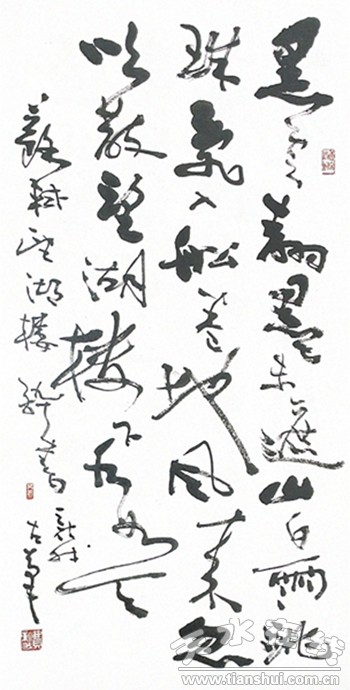 黑云翻墨未遮山白雨跳
珠乱入船卷地风来忽
吹散望湖楼下水如天
蘇軾望湖樓醉書
天水在线
www.tianshui.com.cn